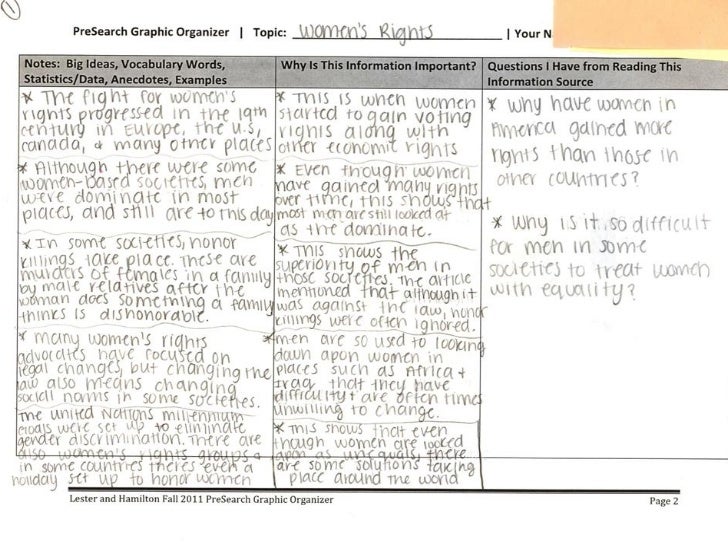 1
PreSearch Graphic Organizer | Topic: Women's Rights | Your N
Notes: Big Ideas, Vocabulary Words,
Statistics/Data, Anecdotes, Examples
* The fight for women's
rights progressed in the 19th
century in Europe, the U.S,
Canada, & many other places
* Although there were some
women-based societies, men
were dominate in most
places, and still are to this day
* In some societies, honor
killings take place. These are
murders of females in a family
by male relatives after the
woman does something a family
thinks is dishonorable.
* Many women's rights
advocates have focused on
legal changes, but changing the
law also means changing
social norms in some societies.
The United Nations Millennium
Goals were set up to eliminate
gender discrimination. There are
also women's rights groups &
in some countries theres even a
holiday set up to honor women
Why Is This Information Important?
* This is when women
started to gain voting
rights along with
other economic rights
* Even though women
have gained many rights
over time, this shows that
most men are still looked at
as the dominate.
* This shows the
superiority of men in
those societies. The article
mentioned that although it
was against the law, honor
killings were often ignored.
* men are so used to looking
down apon women in
places such as Africa +
Iraq that they have
difficulty + are often times
unwilling to change.
* This shows that even
though women are looked
apon as unequals, there
are some solutions taking
place around the world
Questions I Have from Reading This
Information Source
* Why have women in
America gained more
rights than those in
other countries?
* Why is it so difficult
for men in some
societies to treat women
with equality?
Lester and Hamilton Fall 2011 PreSearch Graphic Organizer
Page 2